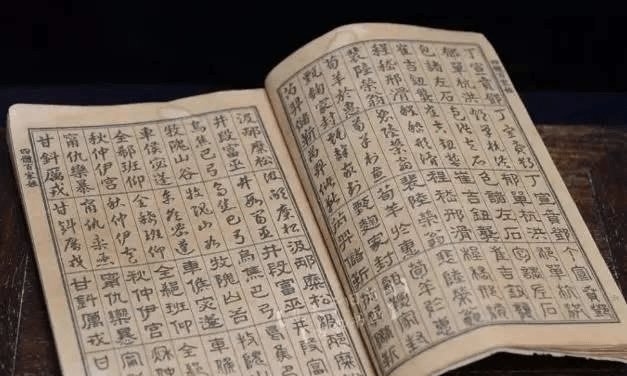 四體百家姓
丁宣賁鄧丁宣賁鄧丁宣賁鄧丁宣賁鄧
郁單杭洪郁單杭洪郁單杭洪郁單杭洪
包諸左石包諸左石包諸左石包諸左石
崔吉鈕龔崔吉鈕龔崔吉鈕龔崔吉鈕龔
程嵇邢滑程嵇邢滑程嵇邢滑程嵇邢滑
裴陸榮翁裴陸榮翁裴陸榮翁裴陸榮翁
荀羊於惠荀羊於惠荀羊於惠荀羊於惠
甄麴家封甄麴家封甄麴家封甄麴家封
芮羿儲靳芮羿儲靳芮羿儲靳
汲邴糜松汲邴糜松汲邴糜松汲邴糜松
井段富巫井段富巫井段富巫井段富
烏焦巴弓烏焦巴弓烏焦巴弓烏焦
牧隗山谷牧隗山谷牧隗山谷牧隗
車侯宓蓬車侯宓蓬車侯宓蓬車侯
全郗班仰全郗班仰全郗班仰全郗
秋仲伊宮秋仲伊宮秋仲伊宮秋仲
甯仇欒暴甯仇欒暴甯仇欒暴甯
甘鈄厲戎甘鈄厲戎甘鈄厲戎甘
四體百家姓